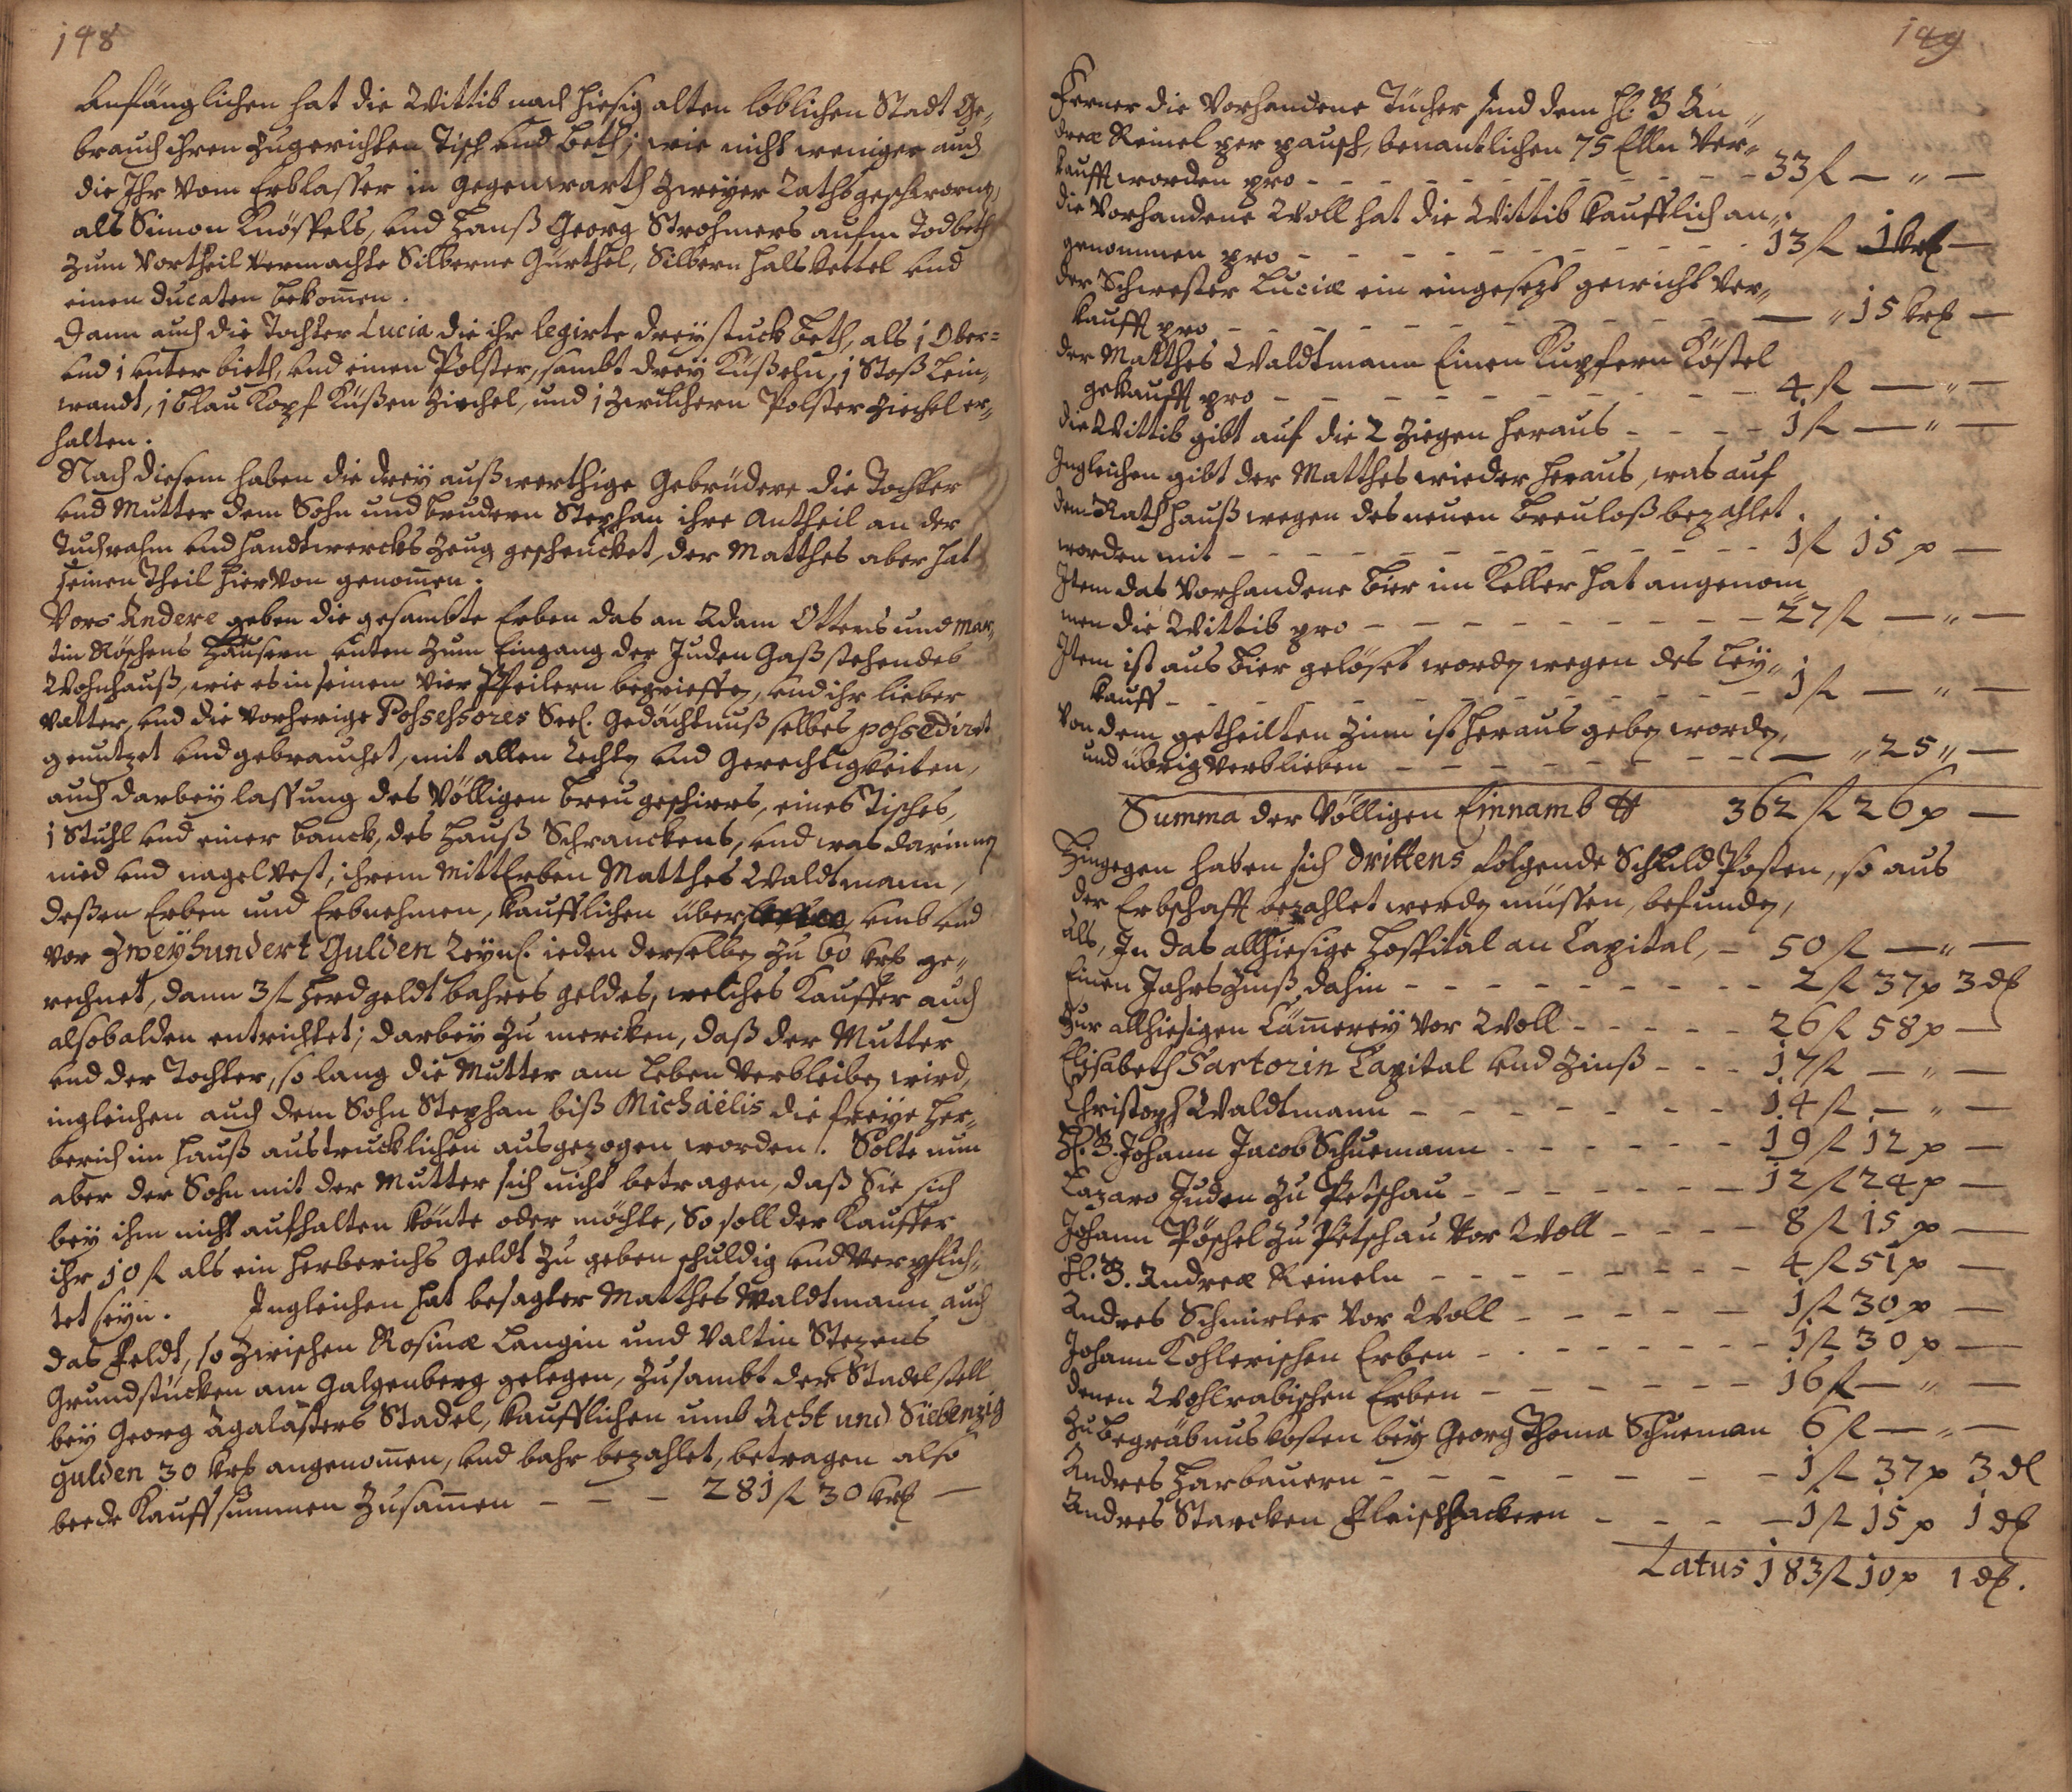 148
Anfänglichen hat die Wittib nach hiesig alten loblichen Stadt Ge„
brauch ihren zugerichten Tisch und Beth; wie nicht weniger auch
die Ihr vom Erblasser in gegenwarth zweyer Rathsgeschworner,
als Simon Knöspels, und Hanß Georg Strohmers aufm Todbeth
zum Vortheil vermachte Silberne Gürthel, Silbern halskettel und
einen ducaten bekomen.
Dann auch die Tochter Lucia die ihr legirte drey stuck beth, als 1 Ober=
und 1 unter bieth, und einen Polster, sambt drey Küßeln, 1 Stoß Lein„
wandt, 1 blau Kopf Küßen Ziechel, und 1 zwilchern Polster Ziechel er„
halten.
Nach diesem haben die drey außwerthige Gebrüdere die Tochter
und Mutter dem Sohn und brudern Stephan ihre Antheil an der
Tuchrahm und handtwercks Zeug geschencket, der Matthes aber hat
seinen Theil hiervon genomen.
Vors Andere geben die gesambte Erben das an Adam Otters und Mar„
tin Röschens Häusern unten zum Eingang der Juden Gaß stehendes
Wohnhauß, wie es in seinen vier Pfeilern begrieffen, und ihr lieber
Vatter, und die vorherige Possessores Seel. Gedächtnuß selbes possedirt
genutzet und gebrauchet, mit allen Rechten und Gerechtigkeiten,
auch darbey lassung des völligen breu geschirrs, eines Tisches,
1 Stuhl und einer banck, des Hauß Schranckens, und was darinnen
nied und nagel vest, ihrem MittErben Matthes Waldtmann,
deßen Erben und Erbnehmen, kaufflichen über umb und
vor Zweyhundert Gulden Reynl. ieden derselben zu 60 krl ge„
rechnet, dann 3 fl Herdgeldt bahres geldes, welches Kauffer auch
alsobalden entrichtet; darbey zu mercken, daß der Mutter
und der Tochter, so lang die Mutter am Leben verbleiben wird,
ingleichen auch dem Sohn Stephan biß Michaelis die freye Her„
berich im Hauß austrucklichen ausgezogen worden. Solte nun
aber der Sohn mit der Mutter sich nicht betragen, daß Sie sich
bey ihm nicht aufhalten könte oder möchte, So soll der Kauffer
ihr 10 fl als ein Herberichs Geldt zu geben schuldig und verpflich„
tet seyn. Ingleichen hat besagter Matthes Waldtmann auch
das Feldt, so zwischen Rosinæ Langin und Valtin Stezens
Grundstücken am Galgenberg gelegen, zusambt der Stadelstell
bey Georg Agalasters Stadel, kaufflichen umb Acht und Siebenzig
gulden 30 krl angenomen, und bahr bezahlet, betragen also
beede Kauffsummen zusamen – – – 281 fl 30 krl –
149
Ferner die vorhandene Tücher sind dem H. B An„
dreæ Reinel per pausch, benantlichen 75 Elln ver„
kaufft worden pro – – – 33 fl – „ –
die vorhandene Woll hat die Wittib kaufflich an„
genommen pro – – – 13 fl 1 krl –
der Schwester Luciæ ein eingesezt gewicht ver„
kaufft pro – – – – „ 15 krl –
der Matthes Waldtmann Einen Kupfern Köstel
gekaufft pro – – – 4 fl – „ –
die Wittib gibt auf die 2 Ziegen heraus – – – 1 fl – „ –
Ingleichen gibt der Matthes wieder heraus, was auf
dem Rathhauß wegen des neuen breuloß bezahlet
worden mit – – – 1 fl 15 p –
Item das vorhandene bier im Keller hat angenom„
men die Wittib pro – – – 27 fl – „ –
Item ist aus bier gelöset worden wegen des Ley„
kauff – – – 1 fl – „ –
Von dem getheilten Zinn ist heraus geben worden,
und übrig verblieben – – – – „ 25 „ –
Summa der völligen Einnamb 362 fl 26 p –
Hingegen haben sich Drittens folgende Schuld Posten, so aus
der Erbschafft bezahlet werden müssen, befunden,
als, In das allhiesige Hospital an Capital, – 50 fl – „ –
Einen Jahrs Zinß dahin – – – 2 fl 37 p 3 dl
Zur allhiesigen Cämerey vor Woll – – – 26 fl 58 p –
Elisabeth Sartorin Capital und Zinß – – – 17 fl – „ –
Christoph Waldtmann – – – 14 fl – „ –
H. B. Johann Jacob Schuemann – – – 19 fl 12 p –
Lazaro Juden zu Petschau – – – 12 fl 24 p –
Johann Pöschel zu Petschau vor Woll – – – 8 fl 15 p –
H. B. Andreæ Reineln – – – 4 fl 51 p –
Andres Schmirler vor Woll – – – 1 fl 30 p –
Johann Kohlerischen Erben – – – 1 fl 30 p –
denen Wohlrabischen Erben – – – 16 fl – „ –
Zu begräbnus kosten bey Georg Thoma Schueman 6 fl – „ –
Andres Harbauern – – – 1 fl 37 p 3 dl
Andres Starcken Fleischhackern – – – 1 fl 15 p 1 dl
Latus 183 fl 10 p 1 dl.